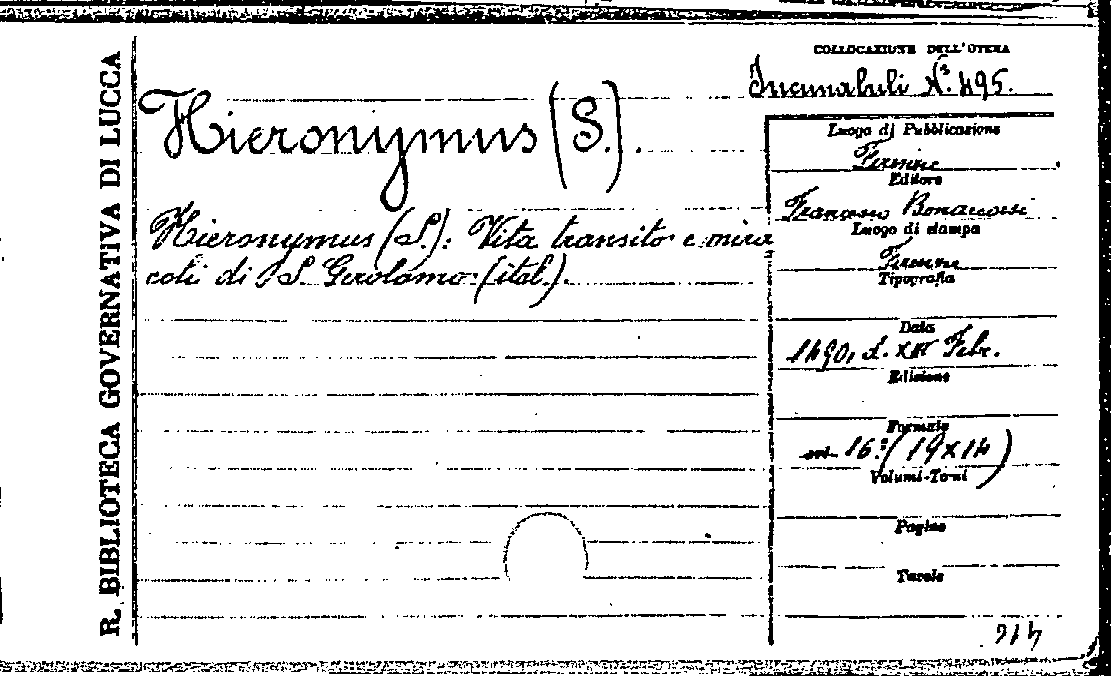 R. BIBLIOTECA GOVERNATIVA DI LUCCA
COLLOCAZIONE DELL'OPERA
Incunabuli N.º 495.
Hieronymus (S.).
Hieronymus (S.): Vita transito e mira
coli di S. Girolamo (ital.).
Luogo di Pubblicazione
Firenze
Editore
Francesco Bonaccorsi
Luogo di stampa
Firenze
Tipografia
Data
1490, d. XIII Febr.
Edizione
Formato
16º (19x14)
Volumi-Tomi
Pagine
Tavole